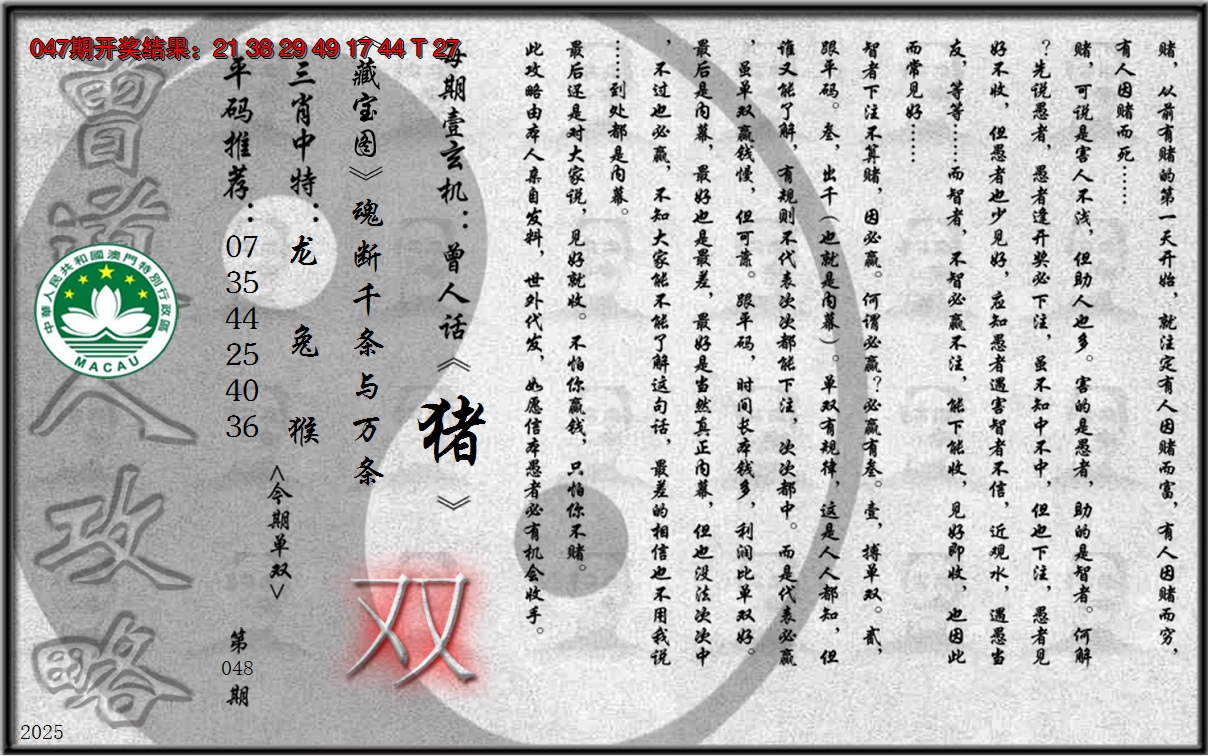 047期开奖结果：21 38 29 49 17 44 T 27
赌，从前有赌的第一天开始，就注定有人因赌而富，有人因赌而穷，
有人因赌而死……
赌，可说是害人不浅，但助人也多。害的是愚者，助的是智者。何解
？先说愚者，愚者逢开奖必下注，虽不知中不中，但也下注，愚者见
好不收，但愚者也少见好，应知愚者遇害智者不信，近观水，遇愚当
友，等等……而智者，不智必赢不注，能下能收，见好即收，也因此
而常见好……
智者下注不算赌，因必赢。何谓必赢？必赢有叁。壹，搏单双。贰，
跟平码。叁，出千（也就是内幕）。单双有规律，这是人人都知，但
谁又能了解，有规则不代表次次都能下注，次次都中。而是代表必赢
，虽单双赢钱慢，但可靠。跟平码，时间长本钱多，利润比单双好。
最后是内幕，最好也是最差，最好是当然真正内幕，但也没法次次中
，不过也必赢，不知大家能不能了解这句话，最差的相信也不用我说
……到处都是内幕。
最后还是对大家说，见好就收。不怕你赢钱，只怕你不赌。
此攻略由本人亲自发料，世外代发，如愿信本愚者必有机会收手。
每期壹玄机：曾人话《猪》
《藏宝图》魂断千条与万条
双
三肖中特：龙 兔 猴
<今期单双>
平码推荐：07 35 44 25 40 36
第048期
曾道人攻略
中華人民共和國澳門特別行政區
MACAU
2025